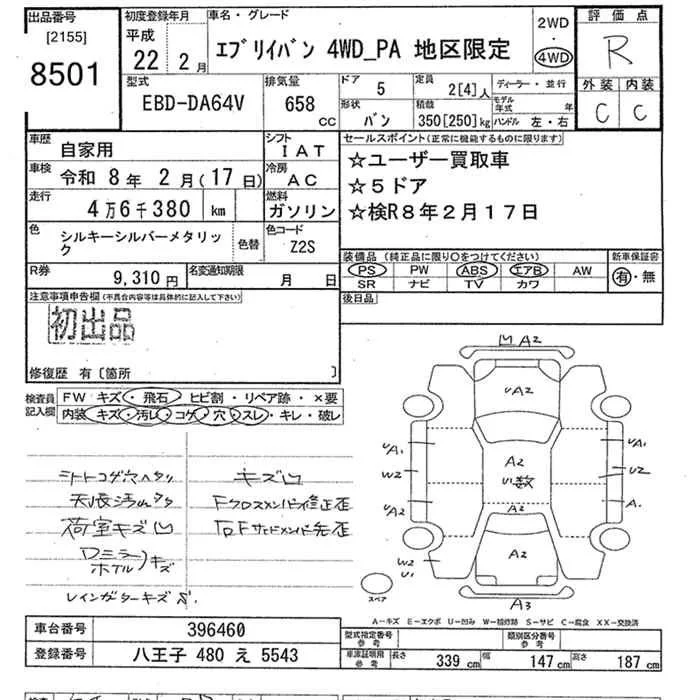 出品番号
[2155]
8501
初度登録年月
平成
22 2月
車名・グレード
エブリイバン 4WD_PA 地区限定
2WD
・
4WD
評価点
R
外装 内装
C C
型式
EBD-DA64V
排気量
658
cc
ドア
5
定員
2[4]人
ディーラー・並行
形状
バン
積載
350[250]kg
モデル年式 年
ハンドル 左・右
車歴
自家用
シフト
IAT
車検
令和 8年 2月(17日)
冷房
AC
走行
4万6千380 km
燃料
ガソリン
色
シルキーシルバーメタリック
色替
色コード
Z2S
R券
9,310円
名変通知期限
月 日
セールスポイント(正常に機能するものに限ります)
☆ユーザー買取車
☆5ドア
☆検R8年2月17日
装備品(純正品に限り○をつけてください)
新車保証書
PS PW ABS エアB AW
SR ナビ TV カワ
有・無
後日品
注意事項申告欄(不具合内容等は具体的に記入して下さい)
初出品
修復歴 有〔箇所 〕
検査員記入欄
FW キズ・飛石・ヒビ割・リペア跡・×要
内装 キズ・汚レ・コゲ・穴・スレ・キレ・破レ
シートコゲ穴ヘタリ
キズ凹
天張汚レ
荷室キズ凹
Fクロスメンバー修正歪
右Fサイドメンバー先歪
ドアミラー
ホイル キズ
レインガターキズ
凹 A2
UA2
UA1
W2
UA2
A2
U数
A2
UA1
U2
A1
A2
W2
U1
スペア
A3
A-キズ E-エクボ U-凹み W-補修跡 S-サビ C-腐食 XX-交換済
車台番号
396460
登録番号
八王子 480 え 5543
型式指定番号
参考
類別区分番号
参考
車庫証明用
参考
長さ 339 cm
幅 147 cm
高さ 187 cm